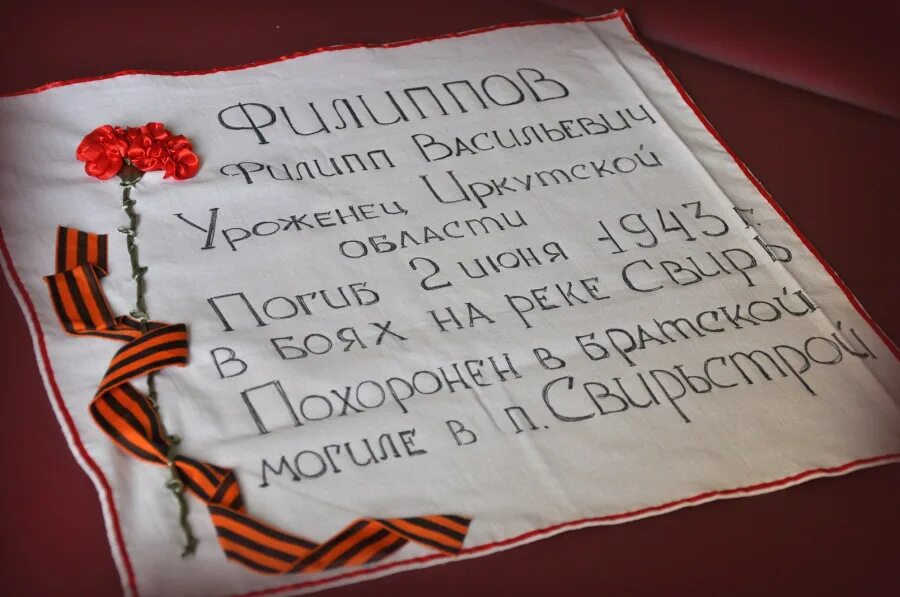 Филиппов
Филипп Васильевич
Уроженец Иркутской
области
Погиб 2 июня 1943 г.
в боях на реке Свирь
Похоронен в братской
могиле в п. Свирьстрой